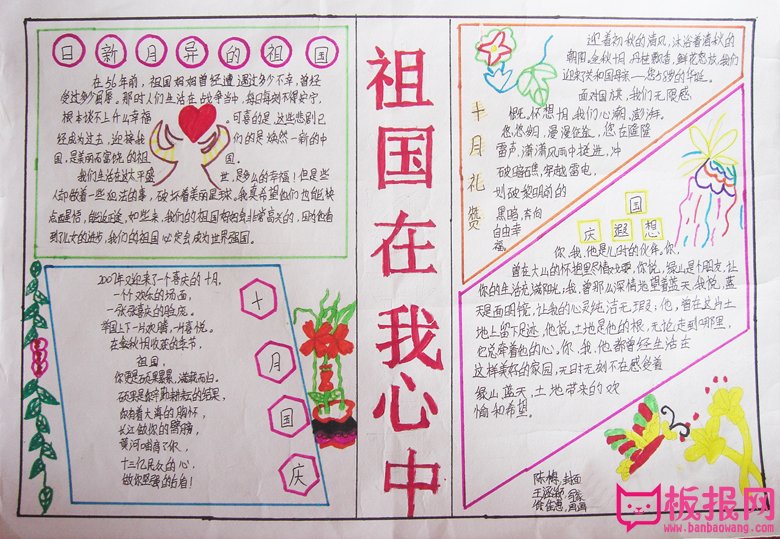 日新月异的祖国
在56年前，祖国妈妈曾经遭遇过多少不幸，曾经
受过多少屈辱。那时人们生活在战争当中，每日每刻不得安宁，
根本谈不上什么幸福
可喜的是，这些悲剧已
经成为过去，迎接我
们的是焕然一新的中
国，是美丽而富饶的祖
国。
我们生活在这太平盛
世，是多么的幸福！但是些
人却做着一些犯法的事，破坏着美丽星球。我真希望他们也能快
到了儿女的进步，我们的祖国一定会成为世界强国。
2007年又迎来了一个喜庆的十月，
一个欢乐的场面，
一张张喜庆的脸庞。
举国上下一片欢腾，一片喜悦。
在金秋十月收获的季节，
祖国，
你更是硕果累累，满载而归。
硕果是你辛勤耕耘的结果，
你有着大海的胸怀，
长江做你的臂膀，
黄河唱着了你，
十三亿民众的心，
做你坚强的后盾！
十月国庆
祖国在我心中
十月礼赞
迎着初秋的清风，沐浴着清秋的
朝阳，金秋十月，丹桂飘香，鲜花怒放，我们
迎来了共和国母亲——您58岁的华诞。
面对国旗，我们无限感
慨。怀想十月，我们心潮澎湃。
悠悠岁月，漫漫征途，您在隆隆
雷声，潇潇风雨中挺进，冲
破暗礁，穿越雷电，
划破黎明前的
黑暗，去向
自由幸
福。
国庆遐想
你、我、他是儿时的伙伴。你，
曾在大山的怀抱里尽情欢耍，你说，绿山是个朋友，让
你的生活充满阳光；我，曾那么深情地望着蓝天，我说，蓝
天是面明镜，让我的心灵纯洁无瑕；他，曾在这片土
地上留下足迹，他说，土地是他的根，无论走到哪里，
它总牵着他的心。你、我、他，都曾经生活在
这样美好的家园，无时无刻不在感受着
绿山、蓝天、土地带来的欢
愉和希望。
板报网
www.banbaowang.com